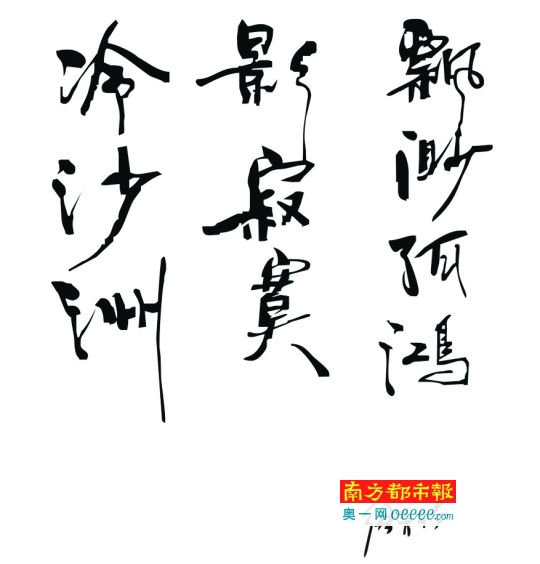 飘渺孤鸿
影寂寞
冷沙洲
南方都市報
奥一网oeeee.com